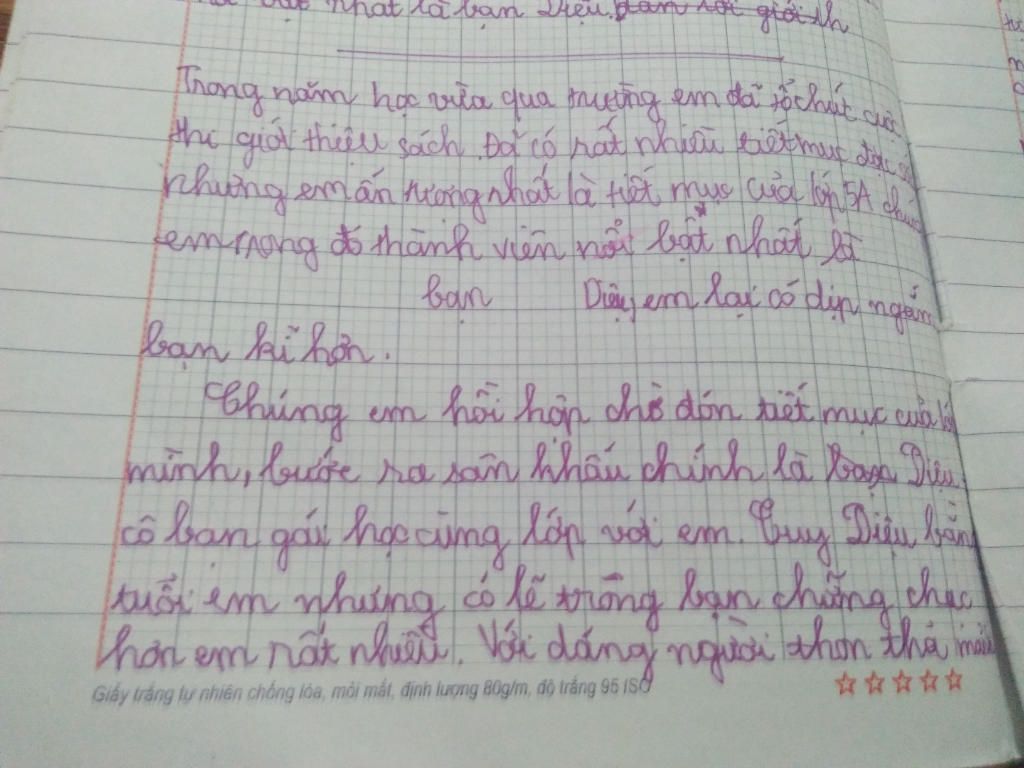 nhất là bạn Diệu.
Trong năm học vừa qua trường em đã tổ chức cuộc
thi giới thiệu sách. Đã có rất nhiều tiết mục đặc
nhưng em ấn tượng nhất là tiết mục của lớp 5A chúng
em trong đó thành viên nổi bật nhất là
bạn Diệu, em lại có dịp ngắm
bạn kĩ hơn.
Chúng em hồi hộp chờ đón tiết mục của lớp
mình, bước ra sân khấu chính là bạn Diệu
cô bạn gái học cùng lớp với em. Tuy Diệu bằng
tuổi em nhưng có lẽ trông bạn chững chạc
hơn em rất nhiều. Với dáng người thon thả
Giấy trắng tự nhiên chống lóa, mỏi mắt, định lượng 80g/m, độ trắng 95 ISO